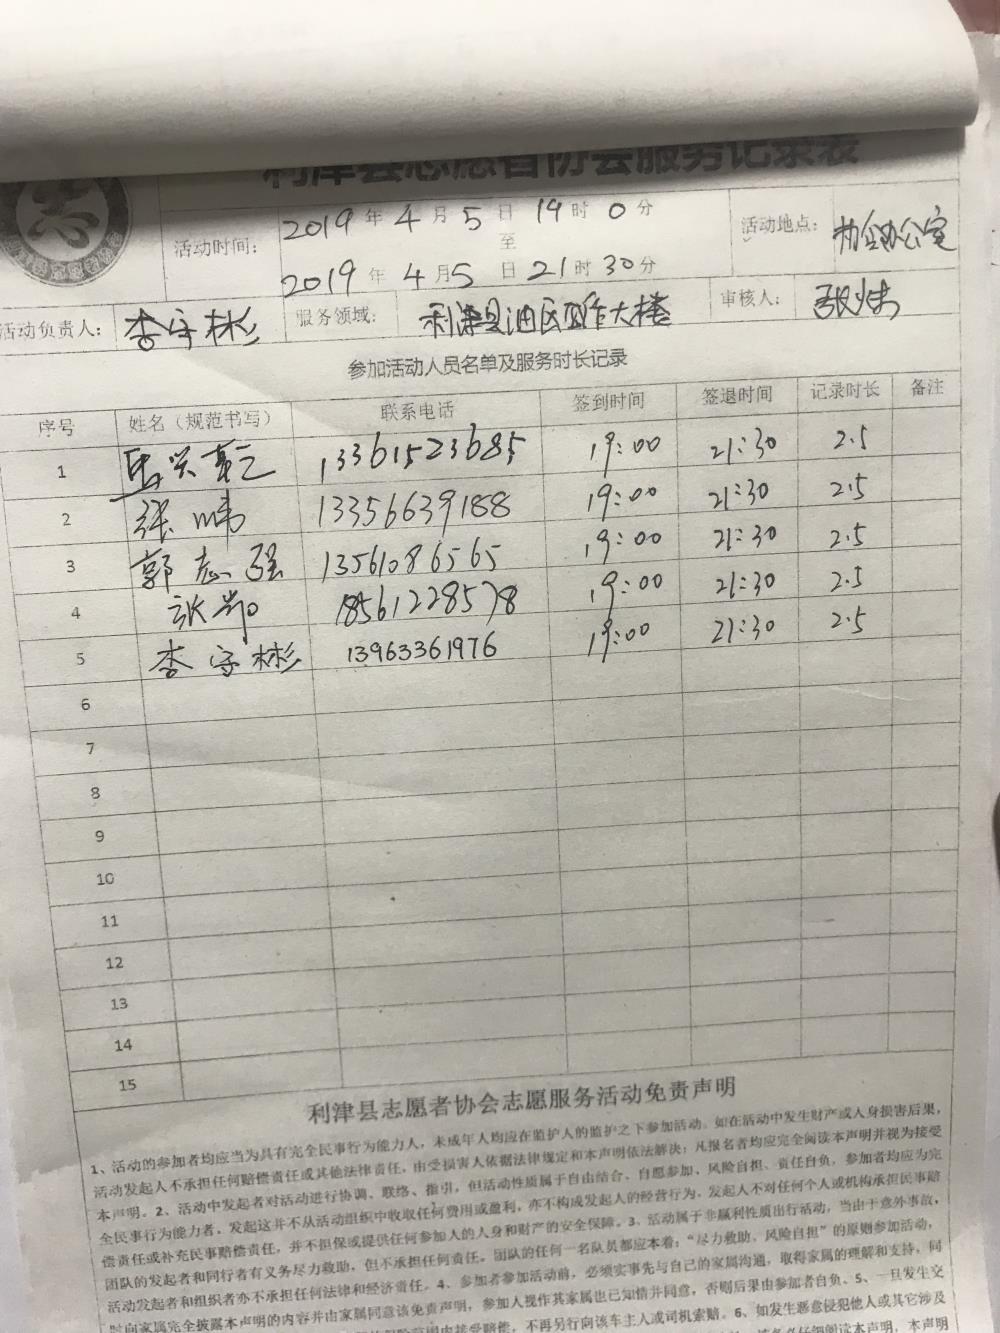 利津县志愿者协会服务记录表
活动时间： 2019 年 4 月 5 日 19 时 0 分 活动地点： 协会办公室
至
2019 年 4 月 5 日 21 时 30 分
活动负责人： 李守彬 服务领域： 利津县油区工作大楼 审核人： 张炜
参加活动人员名单及服务时长记录
序号 姓名（规范书写） 联系电话 签到时间 签退时间 记录时长 备注
1 13361523685 19:00 21:30 2.5
2 张炜 13356639188 19:00 21:30 2.5
3 郭志强 13561086565 19:00 21:30 2.5
4 张 18561228578 19:00 21:30 2.5
5 李守彬 13963361976 19:00 21:30 2.5
6
7
8
9
10
11
12
13
14
15
利津县志愿者协会志愿服务活动免责声明
1、活动的参加者均应当为具有完全民事行为能力人，未成年人均应在监护人的监护之下参加活动。如在活动中发生财产或人身损害后果，
活动发起人不承担任何赔偿责任或其他法律责任，由受损害人依据法律规定和本声明依法解决；凡报名者均应完全阅读本声明并视为接受
本声明。2、活动中发起者对活动进行协调、联络、指引，但活动性质属于自由结合、自愿参加、风险自担、责任自负，参加者均应为完
全民事行为能力者，发起这并不从活动组织中收取任何费用或盈利，亦不构成发起人的经营行为，发起人不对任何个人或机构承担民事赔
偿责任或补充民事赔偿责任，并不担保或提供任何参加人的人身和财产的安全保障。3、活动属于非赢利性质出行活动，当由于意外事故，
团队的发起者和同行者有义务尽力救助，但不承担任何责任。团队的任何一名队员都应本着：“尽力救助、风险自担”的原则参加活动，
活动发起者和组织者亦不承担任何法律和经济责任。4、参加者参加活动前，必须实事先与自己的家属沟通，取得家属的理解和支持，同
时向家属完全披露本声明的内容并由家属同意该免责声明，参加人视作其家属也已知情并同意，否则后果由参加者自负。5、一旦发生交
接受赔偿，不再另行向该车主人或司机索赔。6、如发生恶意侵犯他人或其它涉及
仔细阅读本声明，本声明